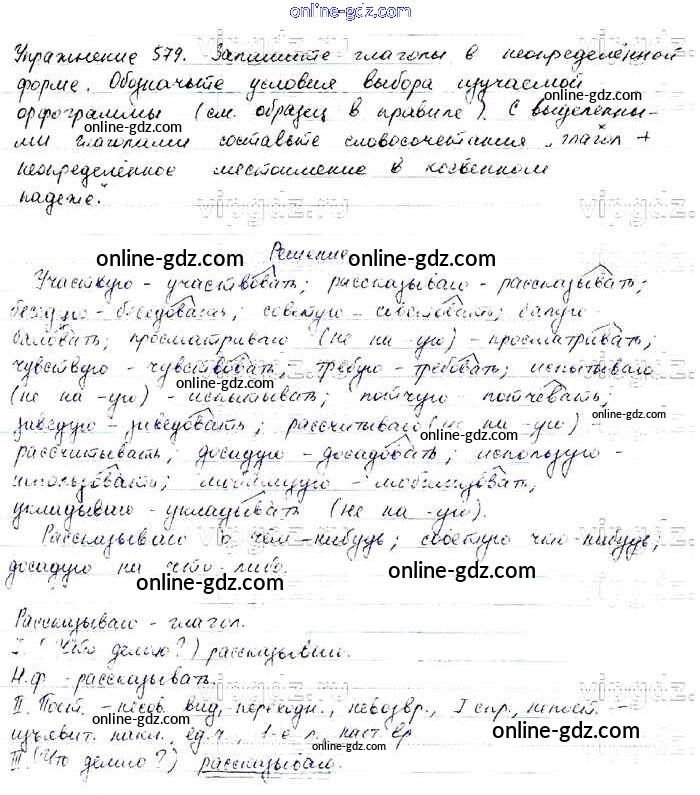 online-gdz.com
online-gdz.com
Упражнение 579. Запишите глаголы в неопределённой
форме. Обозначьте условия выбора изучаемой
орфограммы (см. образец в правиле). С выделенны-
ми глаголами составьте словосочетания „глагол +
неопределённое местоимение в косвенном
падеже."
vipgdz.ru
online-gdz.com
online-gdz.com
Решение
Участвую - участвовать; рассказываю - рассказывать;
беседую - беседовать; советую - советовать; балую -
баловать; просматриваю (не на -ую) - просматривать;
чувствую - чувствовать; требую - требовать; испытываю
(не на -ую) - испытывать; потчую - потчевать;
заведую - заведовать; рассчитываю (не на -ую) -
рассчитывать; досадую - досадовать; использую -
использовать; мобилизую - мобилизовать;
укладываю - укладывать (не на -ую).
Рассказываю о чём-нибудь; советую что-нибудь;
досадую на что-либо.
online-gdz.com
online-gdz.com
Рассказываю - глагол.
I. (Что делаю?) рассказываю.
Н.ф - рассказывать.
II. Пост. - несов. вид, переходн., невозвр., I спр., непост. -
изъявит. накл., ед.ч., 1-е л., наст. вр
III. (Что делаю?) рассказываю.
online-gdz.com
online-gdz.com